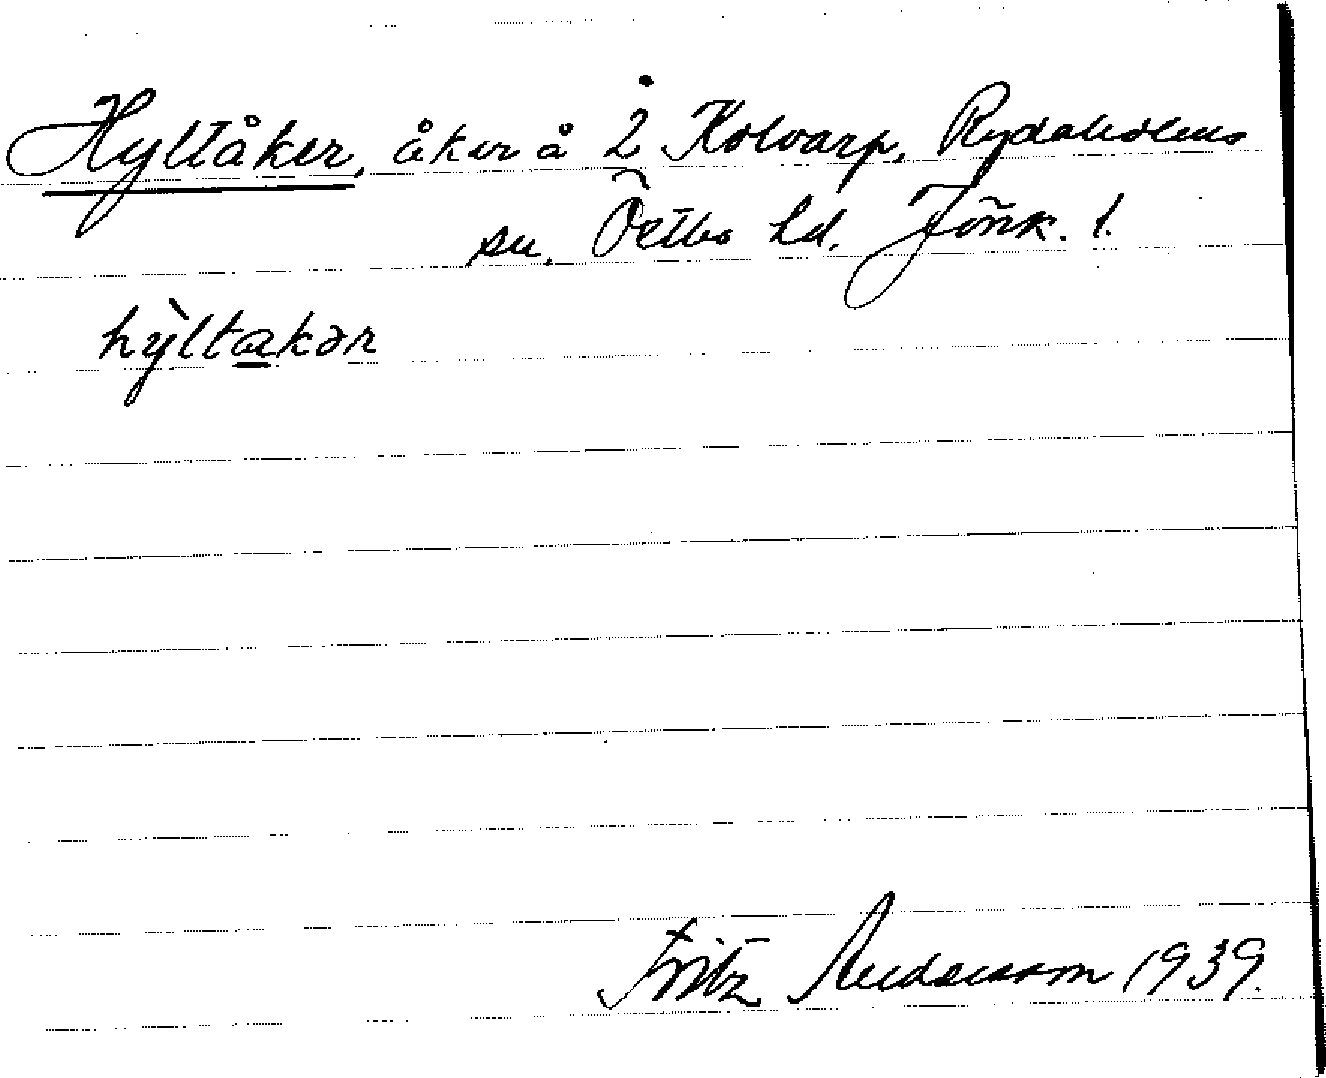 Hyltåker, åker å 2 Kolvarp, Rydaholms
sn. Östbo hd. Jönk. l.
hỳltakər
Fritz Andersson 1939.